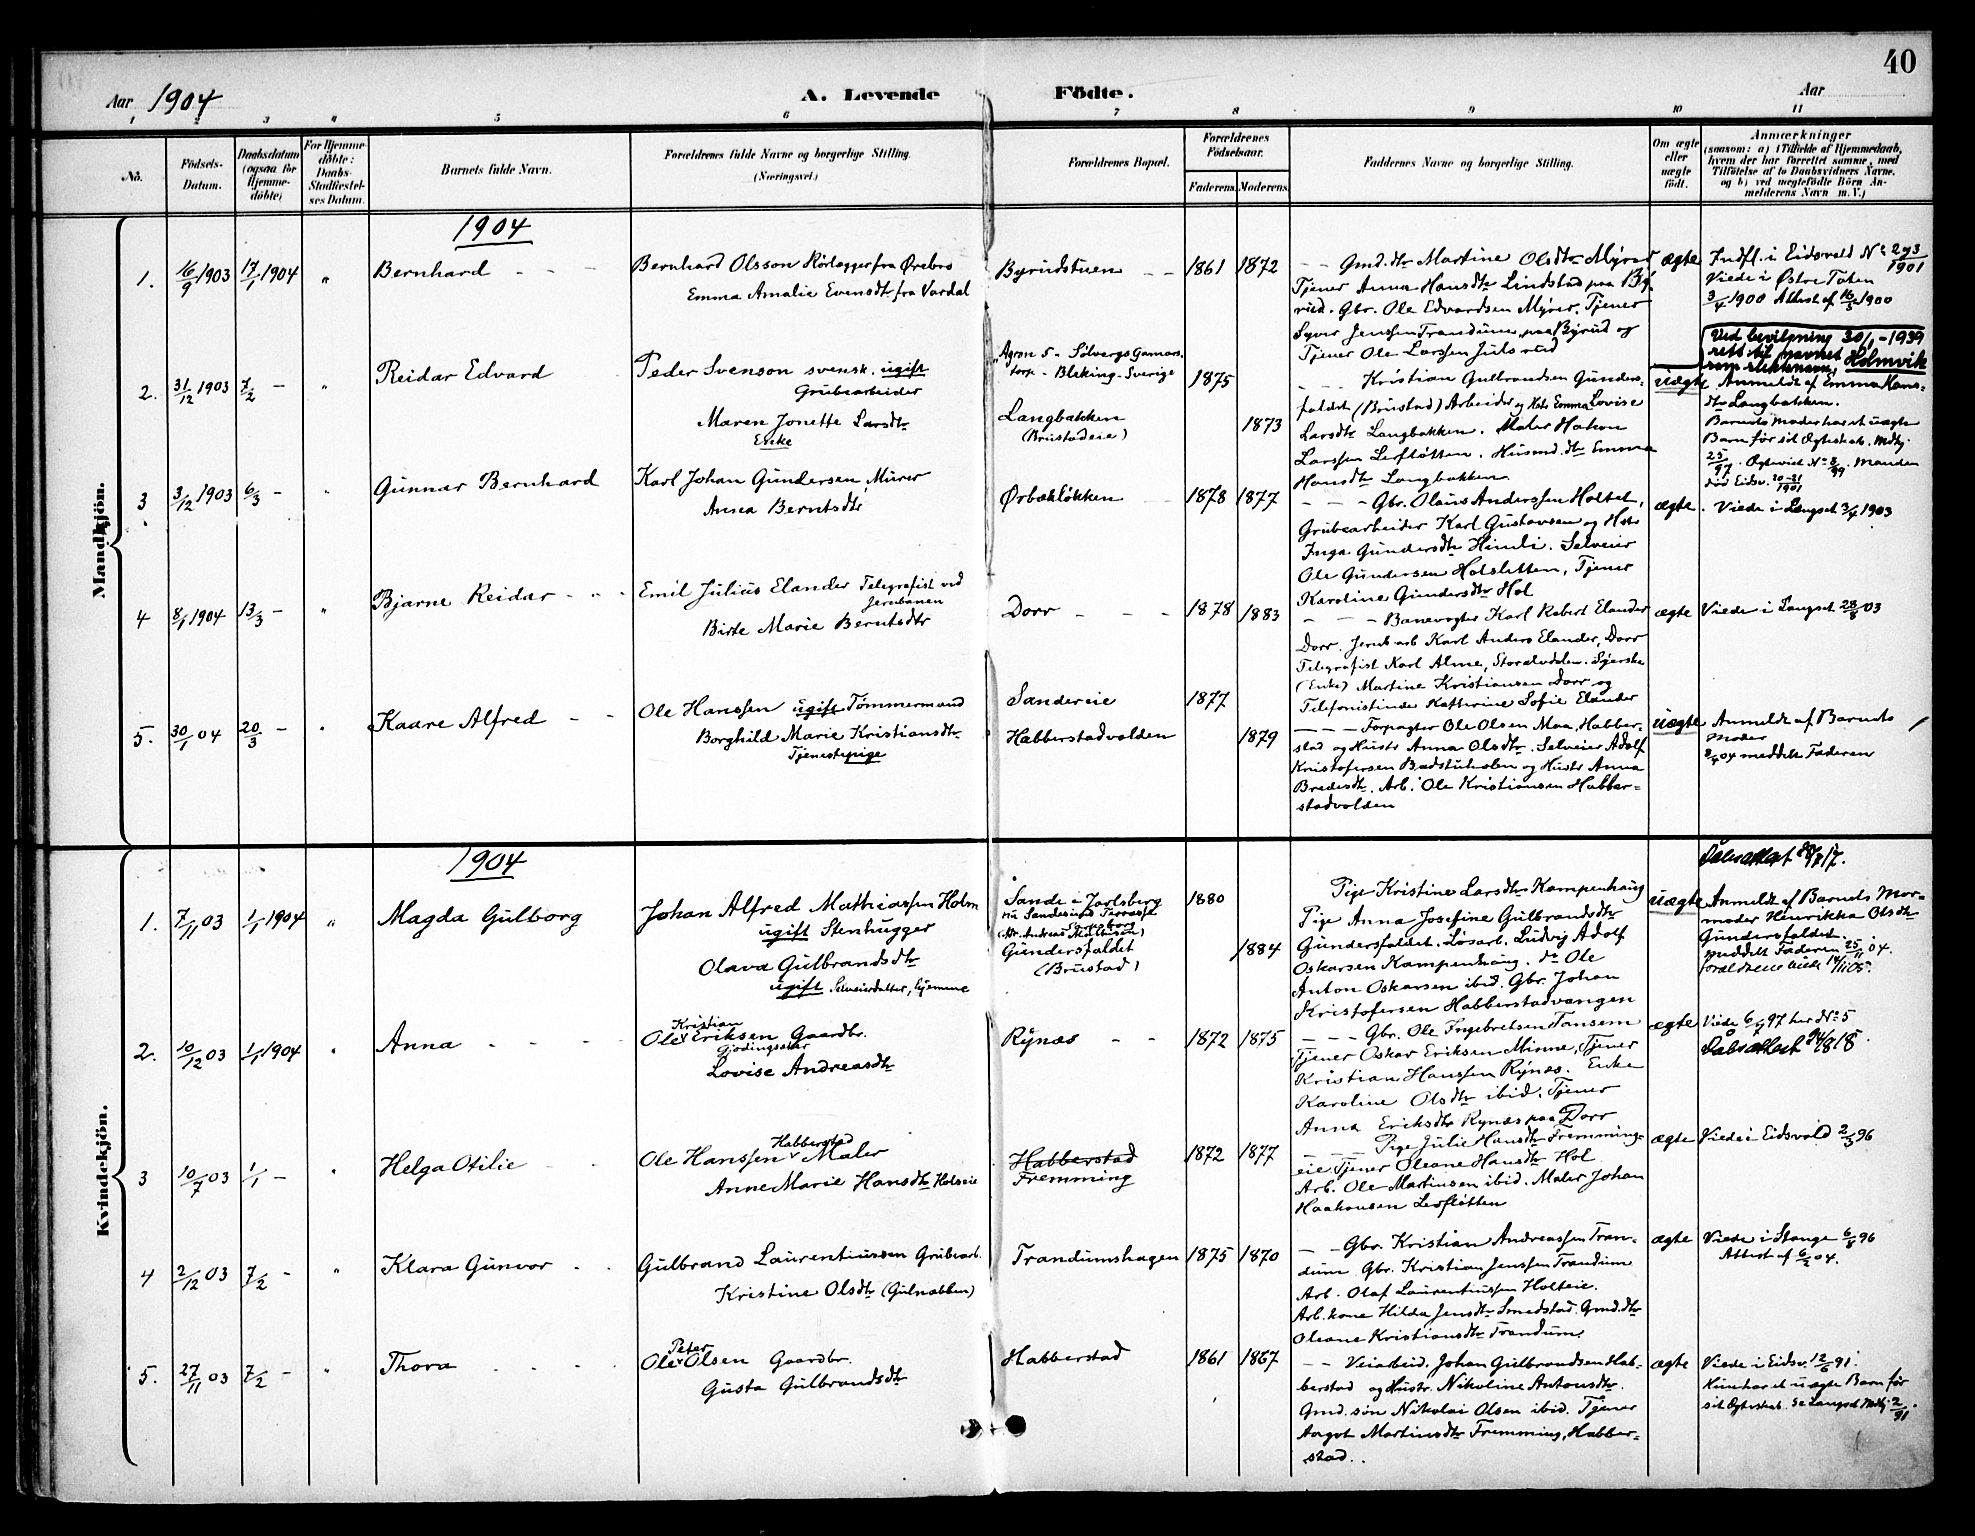 40
Aar 1904
A. Levende Födte.
Aar
1 2 3 4 5 6 7 8 9 10 11
No.
Födsels-
Datum.
Daabsdatum
(ogsaa for
Hjemme-
döbte)
For Hjemme-
döbte:
Daabs-
Stadfæstel-
ses Datum.
Barnets fulde Navn.
Forældrenes fulde Navne og borgerlige Stilling.
(Næringsvei.)
Forældrenes Bopæl.
Forældrenes
Födselsaar.
Faderens. Moderens.
Faddernes Navne og borgerlige Stilling.
Om ægte
eller
uægte
födt.
Anmærkninger
(saasom: a) i Tilfælde af Hjemmedaab,
hvem der har forrettet samme, med
Tilföielse af to Daabsvidners Navne,
og b) ved uægtefödte Börn An-
melderens Navn m. V.)
Mandkjön.
1904
1. 16/9 1903 17/1 1904 " Bernhard
Bernhard Olsson Rörlægger fra Ørebro
Emma Amalie Evensdtr fra Vardal
Byrudstuen 1861 1872
Gmd. dtr Martine Olsdtr Myrer
Tjener Anna Hansdtr Lindstad paa By-
rud. Gbr. Ole Edvardsen Myrer. Tjener
Syver Jenssen Trandum paa Byrud og
Tjener Ole Larssen Julsrud
ægte
Indfl. i Eidsvold No 293/1901
Viede i Østre Toten
3/4 1900 Attest af 16/3 1900
2. 31/12 1903 7/2 — " Reidar Edvard
Peder Svenson svensk. ugift
Grubearbeider
Maren Jonette Larsdtr
Enke
Agron 5 - Sölvergs Gamars-
torp - Bleking - Sverige
Langbakken
(Brustadeie)
1875 1873
Kristian Gulbrandsen Gunders-
faldet (Brustad) Arbeider og Hstr Emma Lovise
Larsdtr Langbakken. Maler Hakon
Larssen Lerfløtten. Husmd. dtr Emma
Hansdtr Langbakken
uægte
Ved bevilgning 30/1 - 1939
rett til navnet Holmvik
som slektsnavn,
Anmeldt af Emma Hans-
dtr Langbakken.
Barnets Moder har et uægte
Barn før sit Ægteskab. Mdkj.
25/97. Ægteviet No 8/99. Manden
død Eidsv. 20-21/1901
3 3/12 1903 6/3 — " Gunnar Bernhard
Karl Johan Gundersen, Murer
Anna Berntsdtr
Ørbækløkken 1878 1877
Gbr. Olaus Anderssen Holtet,
Grubearbeider Karl Gustavsen og Hstr
Inga Gundersdtr Himli. Selveier
Ole Gundersen Holsletten, Tjener
Karoline Gundersdtr Hol
ægte. Viede i Langset 3/4 1903
4 8/1 1904 13/3 — " Bjarne Reidar
Emil Julius Elander Telegrafist ved
Jernbanen
Birte Marie Berntsdtr
Dorr 1878 1883
Banevogter Karl Robert Elander
Dorr. Jernb arb Karl Anders Elander, Dorr
Telegrafist Karl Alme, Storelvdalen. Syerske
(Enke) Martine Kristiansen Dorr og
Telefonistinde Kathrine Sofie Elander
ægte Viede i Langset 28/8 03
5. 30/1 04 20/3 — " Kaare Alfred
Ole Hanssen ugift Tømmermand
Borghild Marie Kristiansdtr
Tjenestepige
Sandereie
Habberstadvolden
1877 1879
Forpagter Ole Olsen Moa, Habber-
stad og Hustr Anna Olsdtr. Selveier Adolf
Kristofersen Badstuholen og Hustr Anna
Bredesdtr. Arb. Ole Kristiansen Habber-
stadvolden
uægte Anmeldt af Barnets
Moder
8/4 04 meddelt Faderen
Kvindekjön.
1904
1. 7/11 03 1/1 1904 " Magda Gulborg
Johan Alfred Mathiassen Holm
ugift Stenhugger
Olava Gulbrandsdtr
ugift Selveierdatter, hjemme
Sande i Jarlsberg
nu Sandesund Terrasse
Sarpsborg
(Adr. Andreas Mathisen)
Gundersfaldet
(Brustad)
1880 1884
Pige Kristine Larsdtr Kampenhaug
Pige Anna Josefine Gulbrandsdtr
Gundersfaldet. Løsarb. Ludvig Adolf
Oskarsen Kampenhaug. do Ole
Anton Oskarsen ibid. Gbr. Johan
Kristofersen Habberstadvangen
uægte
Anmeldt af Barnets Mor-
moder Henrikka Olsdtr
Gundersfaldet.
meddelt Faderen 25/11 04.
forældrene viede 14/11 05.
2. 10/12 03 1/1 1904 " Anna
Kristian
Ole Eriksen Gaardbr.
Lovise Andreasdtr
Rynæs 1872 1875
Gbr. Ole Ingebretsen Tansem
Tjener Oskar Eriksen Minne, Tjener
Kristian Hanssen Rynæs. Enke
Karoline Olsdtr ibid. Tjener
Anna Eriksdtr Rynæs paa Dorr
ægte Viede 6/7 97 her No 5
3 10/7 03 1/1 — " Helga Otilie
Habberstad
Ole Hanssen Maler
Anne Marie Hansdtr Holseie
Habberstad
Fremming
1872 1877
Pige Julie Hansdtr Fremming-
eie Tjener Oleane Hansdtr Hol
Arb. Ole Martinsen ibid. Maler Johan
Haakonsen Lerfløtten
ægte Viede i Eidsvold 2/3 96
4 2/12 03 7/2 — " Klara Gunvor
Gulbrand Laurentiussen Grubearb.
Kristine Olsdtr (Gulnabben)
Trandumshagen 1875 1870
Gbr. Kristian Andreassen Tran-
dum. Gbr. Kristian Jenssen Trandum
Arb. Olaf Laurentiussen Holteie.
Arb. kone Hilda Jensdtr Smedstad. Gmd. dtr
Oleane Kristiansdtr Trandum
ægte Viede i Stange 6/8 96
Attest af 6/2 04.
5. 27/11 03 7/2 — " Thora
Peter
Ole Olsen Gaardbr.
Gusta Gulbrandsdtr
Habberstad 1861 1867
Veiarbeid. Johan Gulbrandsen Hab-
berstad og Hustr. Nikoline Antonsdtr.
Gmd. søn Nikolai Olsen ibid. Tjener
Aagot Martinsdtr Fremming, Habber-
stad.
ægte Viede i Eidsv. 12/6 91.
Hun har et uægte Barn før
sit Ægteskab. Se Langset Mdkj. 2/91.